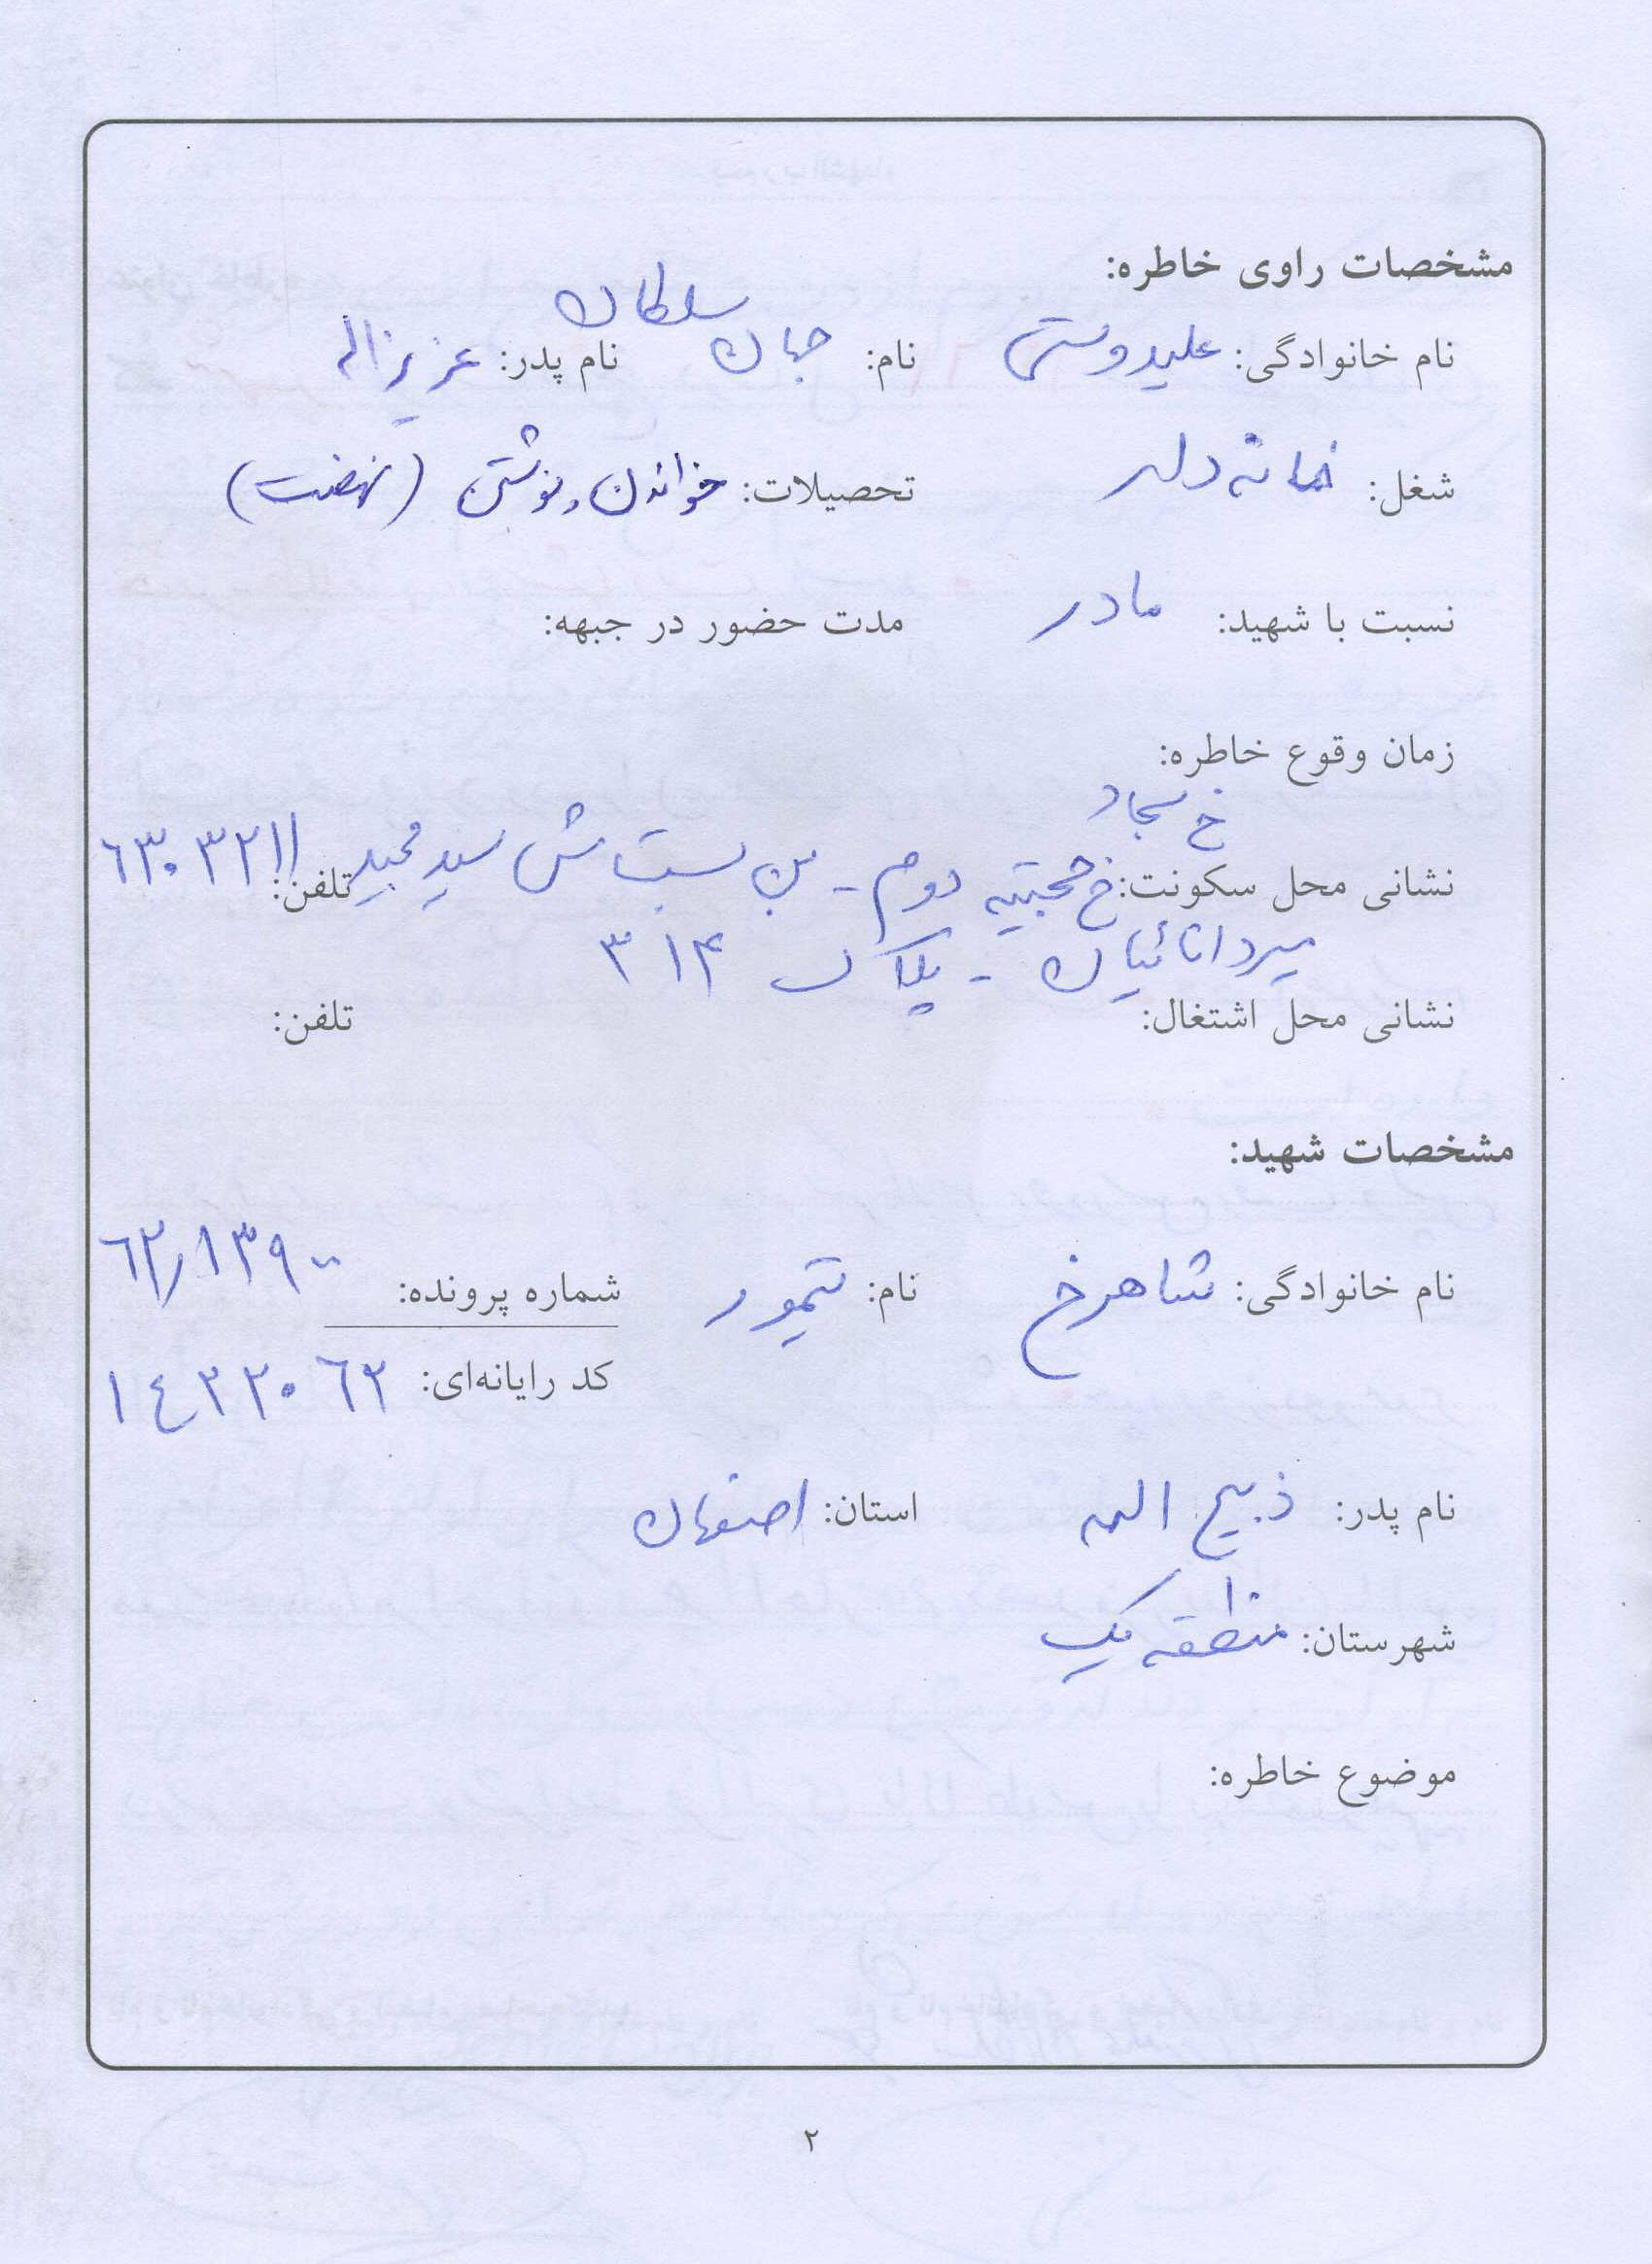 مشخصات راوی خاطره:
نام خانوادگی: علیدوستی نام: جهان سلطان نام پدر: عزیزاله
شغل: خانه دار تحصیلات: خواندن و نوشتن (نهضت)
نسبت با شهید: مادر مدت حضور در جبهه:
زمان وقوع خاطره:
خ سجاد
نشانی محل سکونت: خ حجتیه دوم - بن بست ش سید مجید تلفن: ۶۳۰۳۲۱۱
میردامادیان - پلاک ۳۱۴
نشانی محل اشتغال: تلفن:
مشخصات شهید:
نام خانوادگی: شاهرخ نام: تیمور شماره پرونده: ۶۲/۱۳۹۰۰
کد رایانه‌ای: ۱۴۳۲۰۶۲
نام پدر: ذبیح اله استان: اصفهان
شهرستان: منطقه یک
موضوع خاطره:
۲